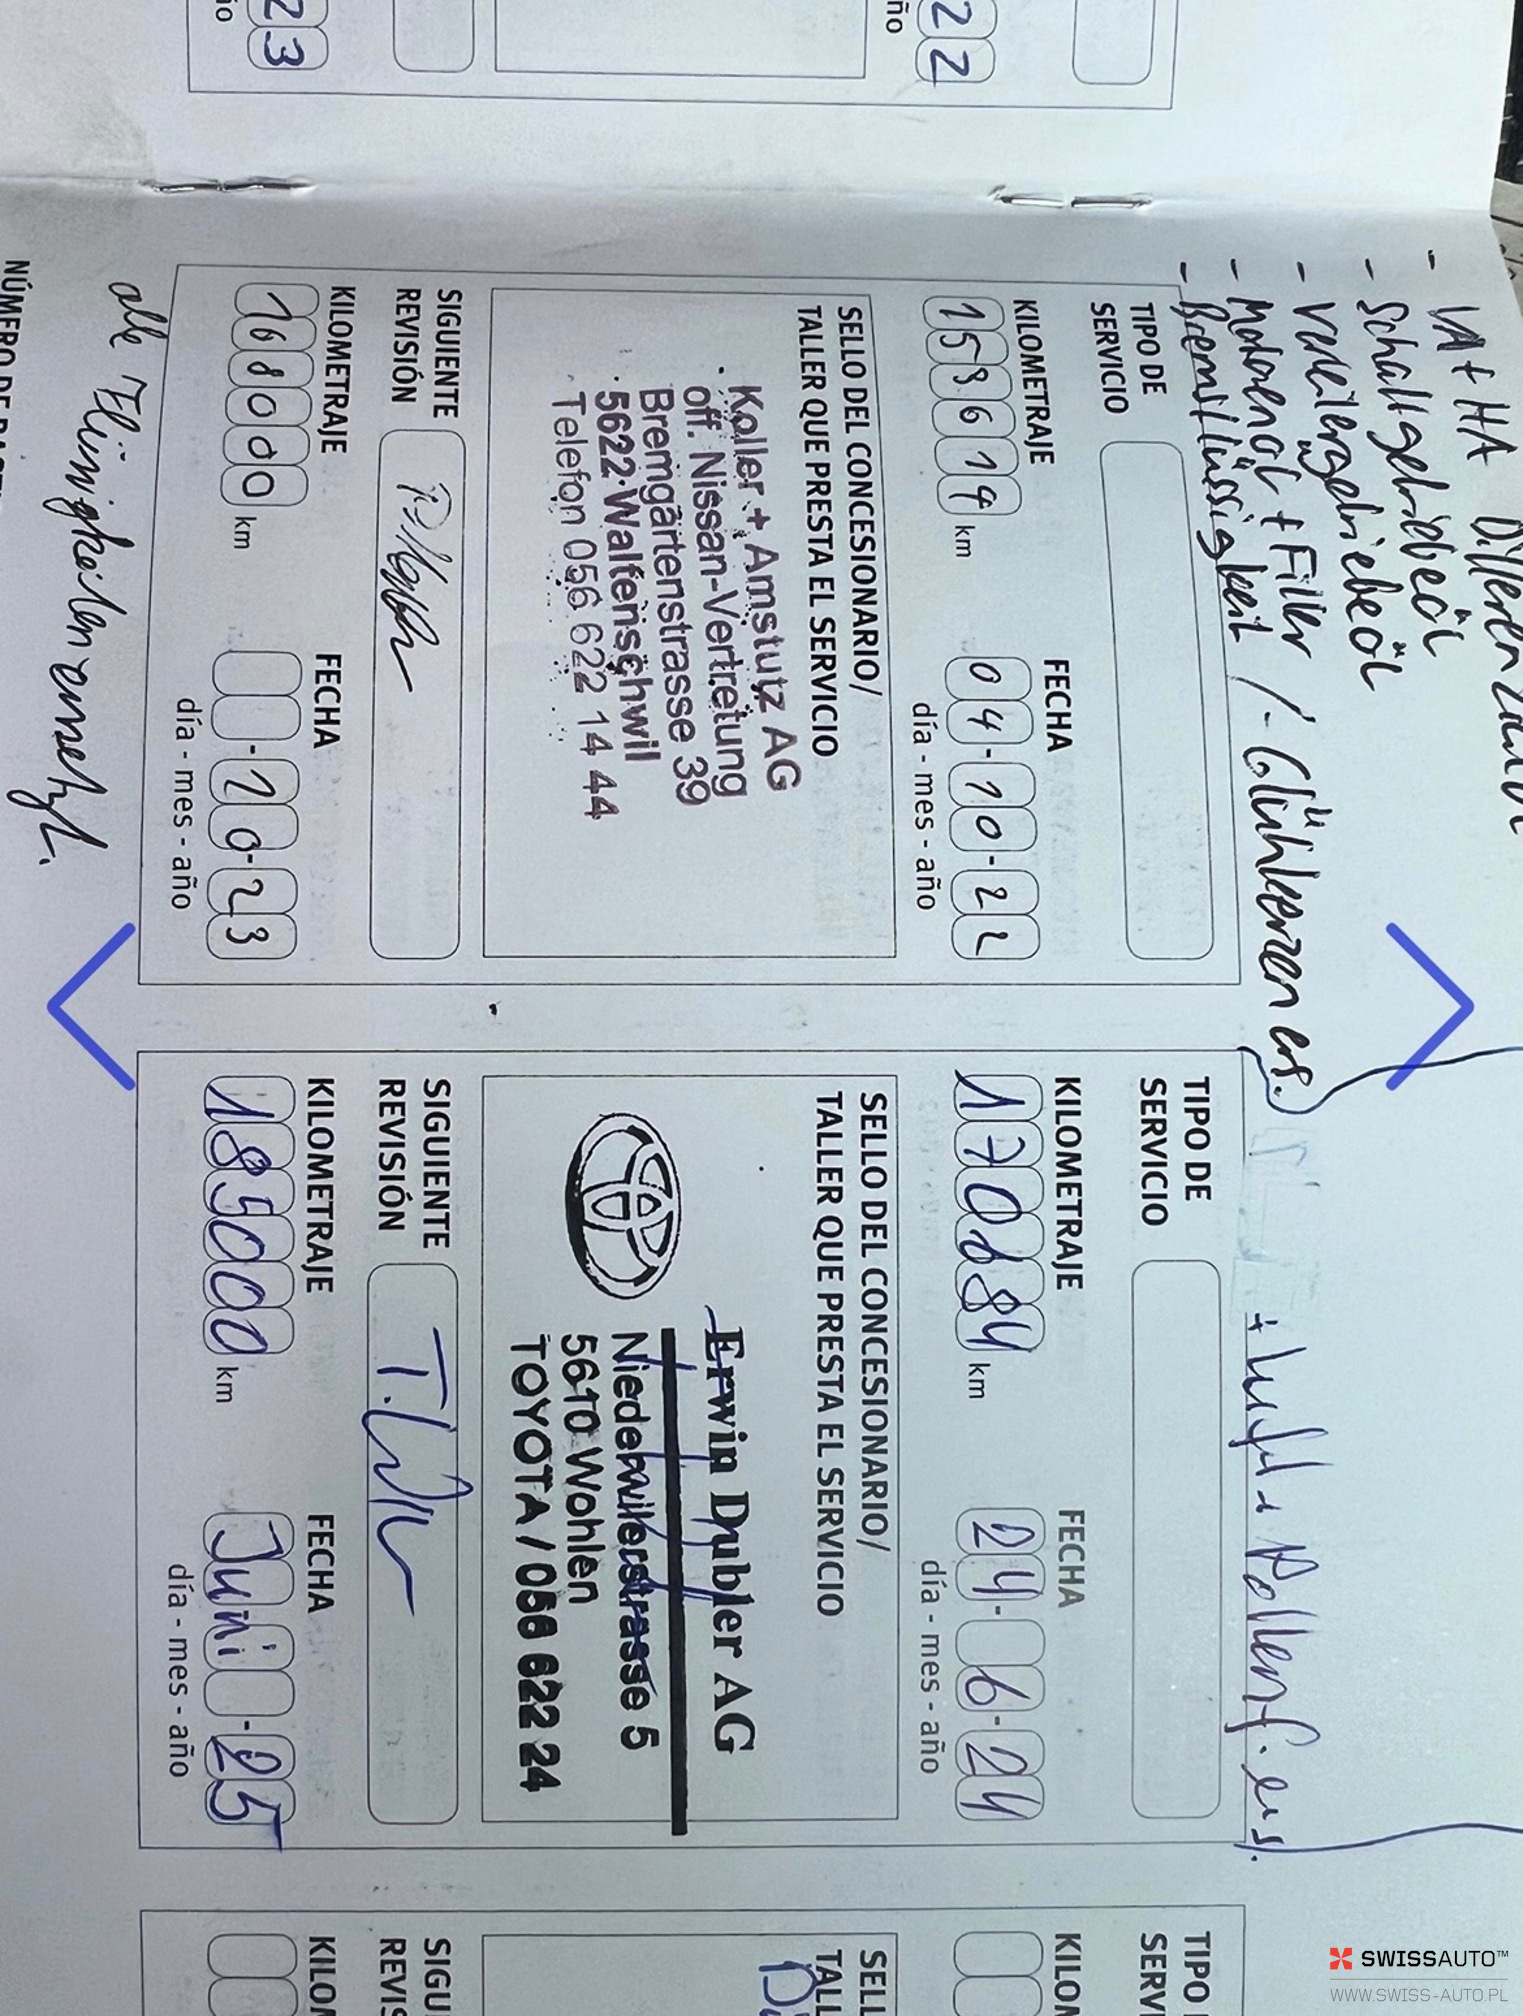 22
ño
23
ño
- VA + HA Differenzialöl
- Schaltgetriebeöl
- Verteilergetriebeöl
- Motorenöl + Filter
- Bremsflüssigkeit / - Glühkerzen ers.
TIPO DE
SERVICIO
KILOMETRAJE
FECHA
km
04-10-22
día - mes - año
SELLO DEL CONCESIONARIO/
TALLER QUE PRESTA EL SERVICIO
Koller + Amstutz AG
off. Nissan-Vertretung
Bremgartenstrasse 39
5622 Waltenschwil
Telefon 056 622 14 44
SIGUIENTE
REVISIÓN
KILOMETRAJE
FECHA
168000 km
10-23
día - mes - año
alle Flüssigkeiten ersetzt.
NÚMERO DE
+ Luft + Pollenf. ers.
TIPO DE
SERVICIO
KILOMETRAJE
FECHA
km
24-6-24
día - mes - año
SELLO DEL CONCESIONARIO/
TALLER QUE PRESTA EL SERVICIO
Erwin Dubler AG
Niederwilerstrasse 5
5610 Wohlen
TOYOTA / 056 622 24
SIGUIENTE
REVISIÓN
KILOMETRAJE
FECHA
185000 km
Juni-25
día - mes - año
TIPO
SERV
KILO
SELL
TALL
SIGU
REVIS
KILOM
SWISSAUTO™
WWW.SWISS-AUTO.PL